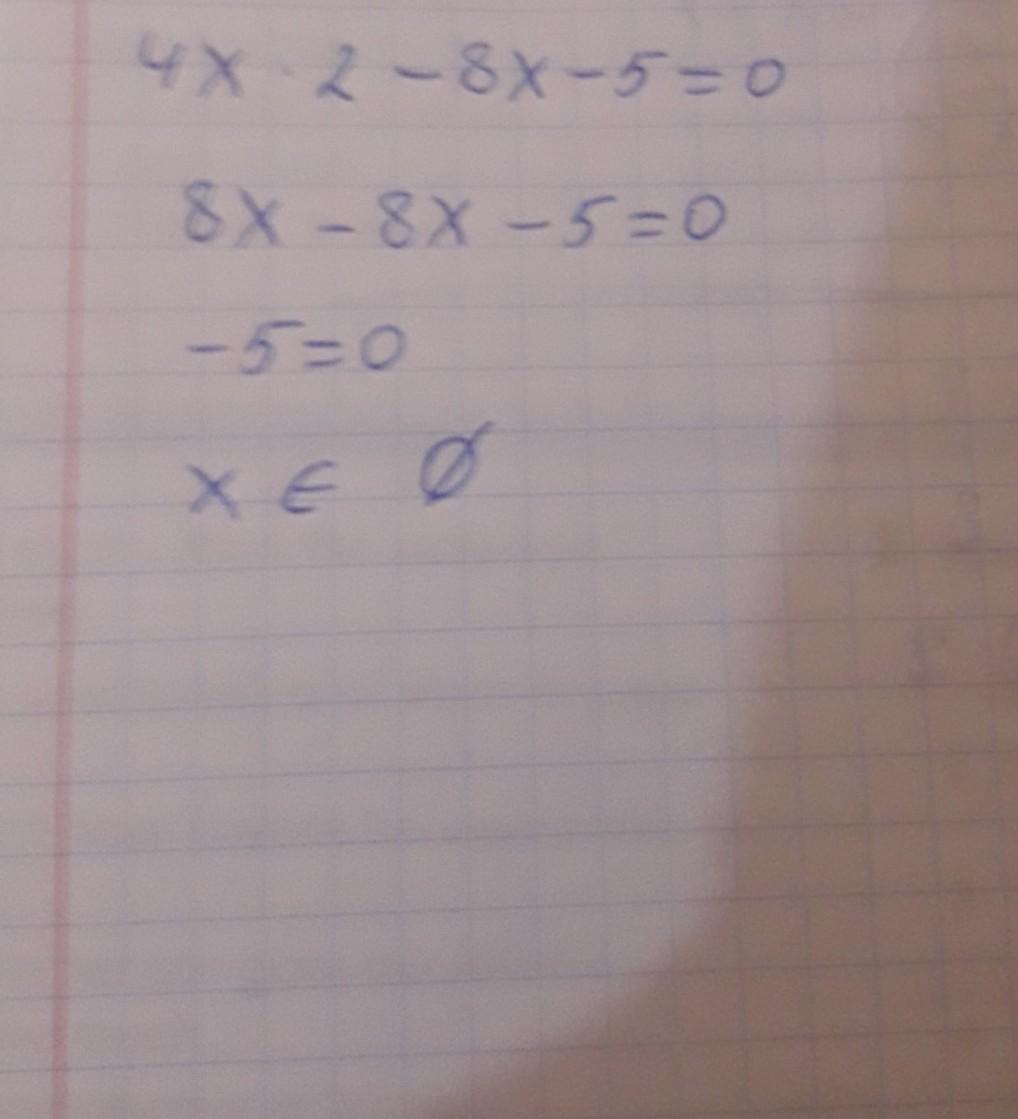 4x · 2 - 8x - 5 = 0
8x - 8x - 5 = 0
-5 = 0
x ∈ ∅